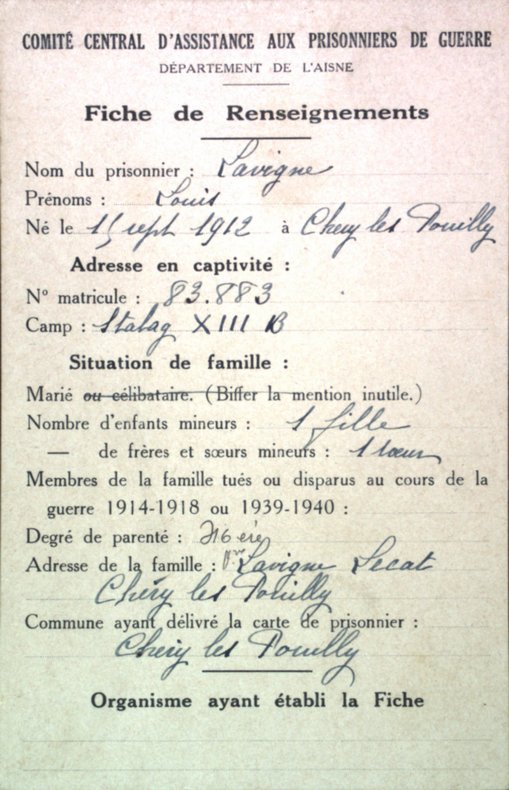 COMITÉ CENTRAL D'ASSISTANCE AUX PRISONNIERS DE GUERRE
DÉPARTEMENT DE L'AISNE
Fiche de Renseignements
Nom du prisonnier : Lavigne
Prénoms : Louis
Né le 15 sept 1912 à Chery les Pouilly
Adresse en captivité :
N° matricule : 83.883
Camp : Stalag XIII B
Situation de famille :
Marié ou célibataire. (Biffer la mention inutile.)
Nombre d'enfants mineurs : 1 fille
— de frères et sœurs mineurs : 1 sœur
Membres de la famille tués ou disparus au cours de la
guerre 1914-1918 ou 1939-1940 :
Degré de parenté :
Adresse de la famille : Lavigne Lecat
Chéry les Pouilly
Commune ayant délivré la carte de prisonnier :
Chery les Pouilly
Organisme ayant établi la Fiche